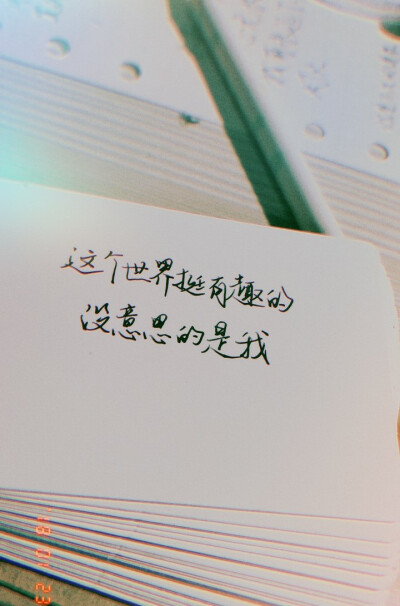 这个世界挺有趣的
没意思的是我